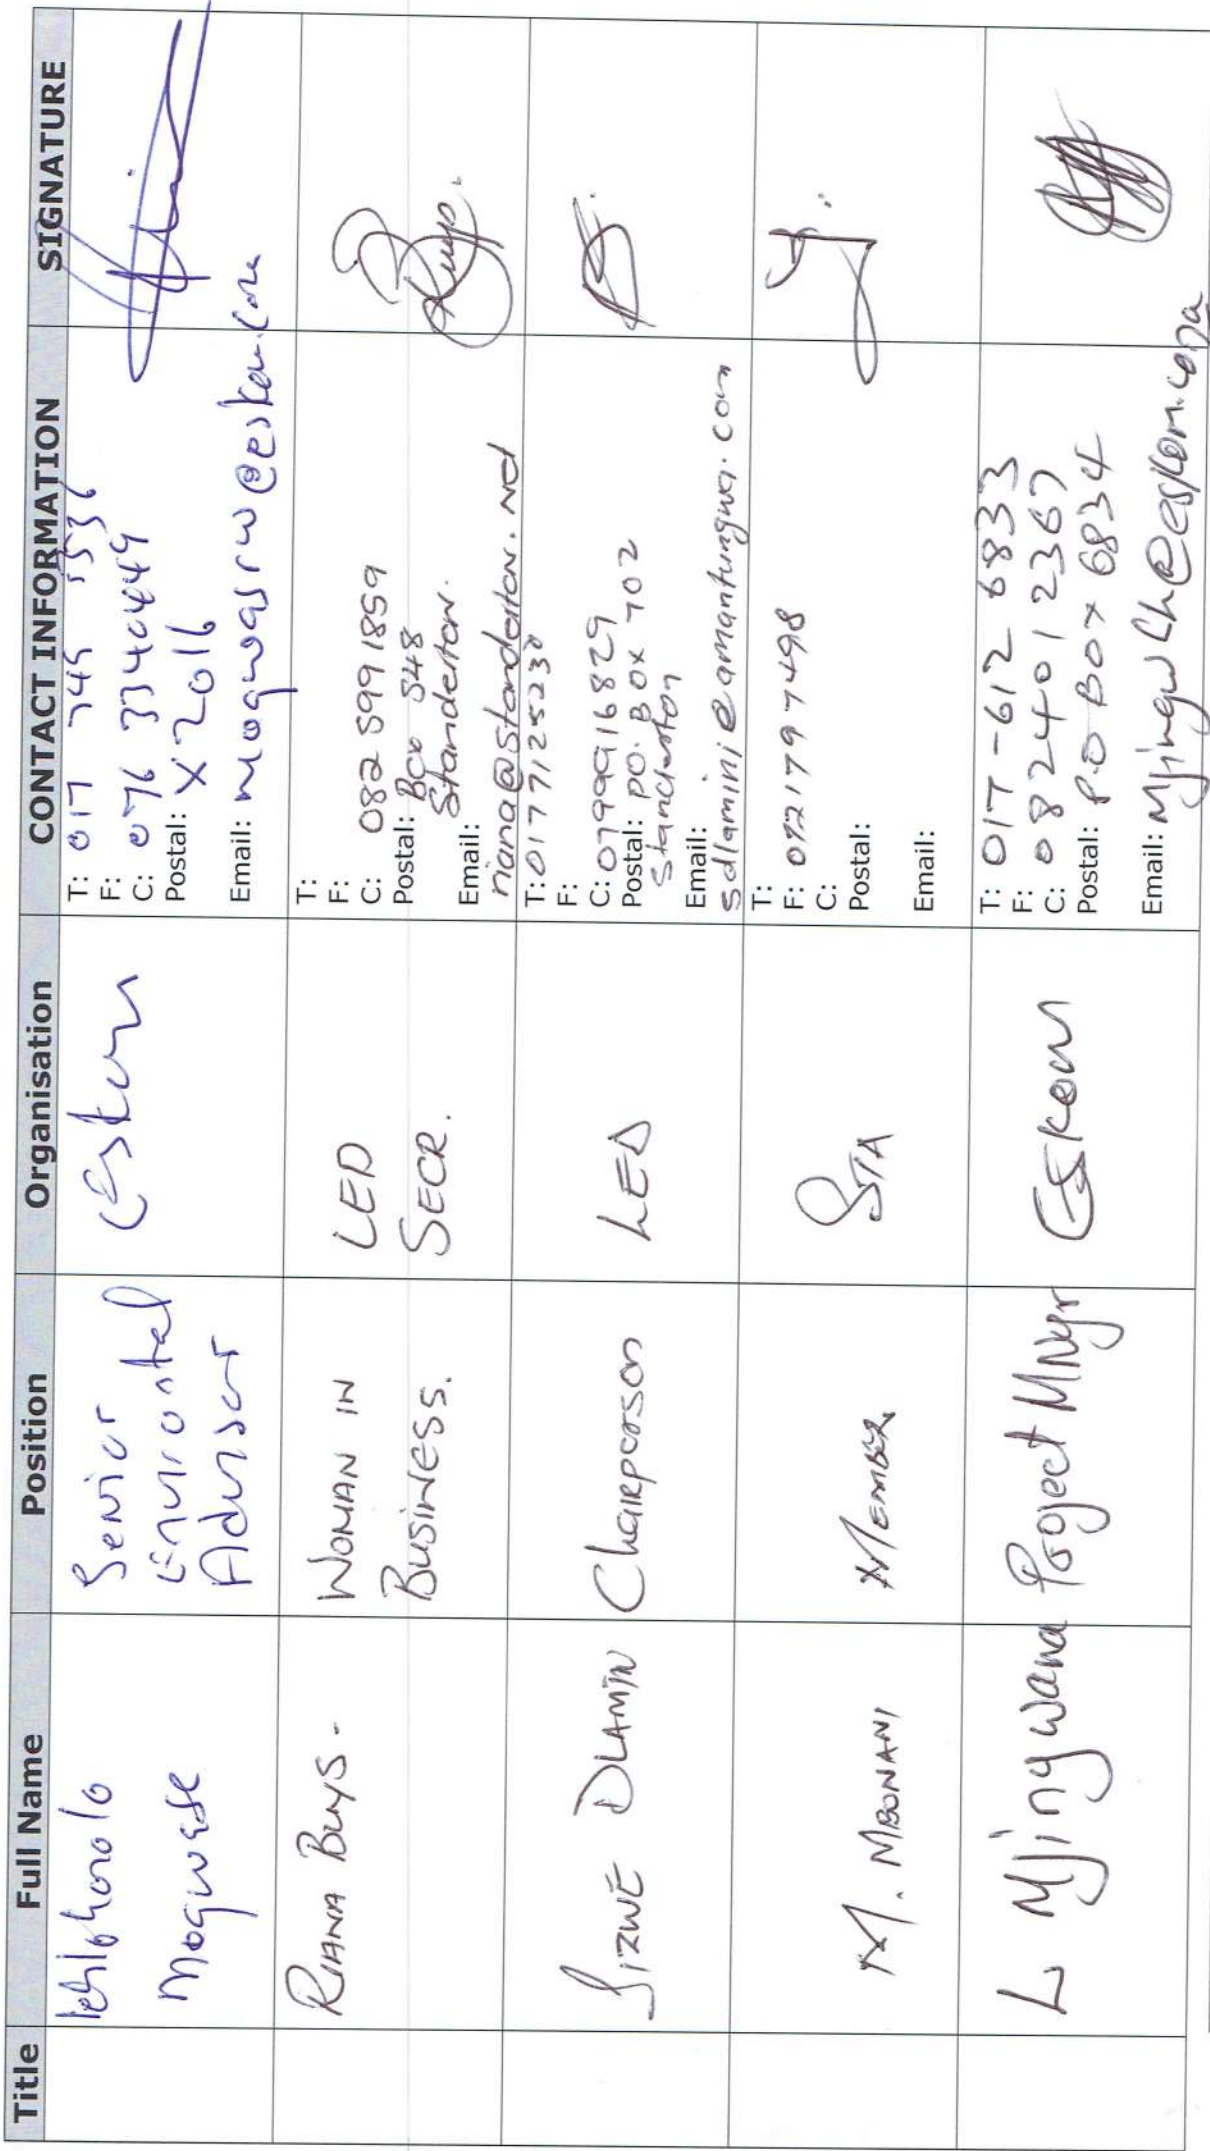 Title Full Name Position Organisation CONTACT INFORMATION SIGNATURE
Moqwase
Senior
Advisor
Eskom
T: 017 749
F:
C: 076
Postal: X2016
Email:
RIANA BUYS.
WOMAN IN
BUSINESS.
LED
SECR.
T:
F:
C: 082 5991859
Postal: Box 548
Standerton.
Email:
riana@standerton.net
SIZWE DLAMINI
Chairperson
LED
T: 0177125230
F:
C: 0799916829
Postal: PO. Box 702
Standerton
Email:
sdlamini@amantungwa.com
M. MBONANI
MEMBER
STA
T:
F: 0721797498
C:
Postal:
Email:
L Mjingwana
Project MNgr
Eskom
T: 017-612 6833
F:
C: 082401 2367
Postal: P.O Box 6834
Email: MjingwLh@eskom.co.za